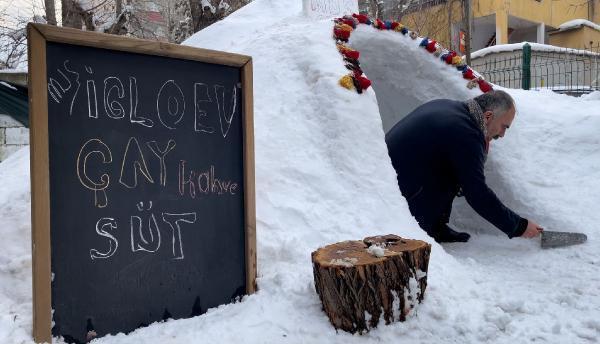 İGLOEV
ÇAY Kahve
SÜT